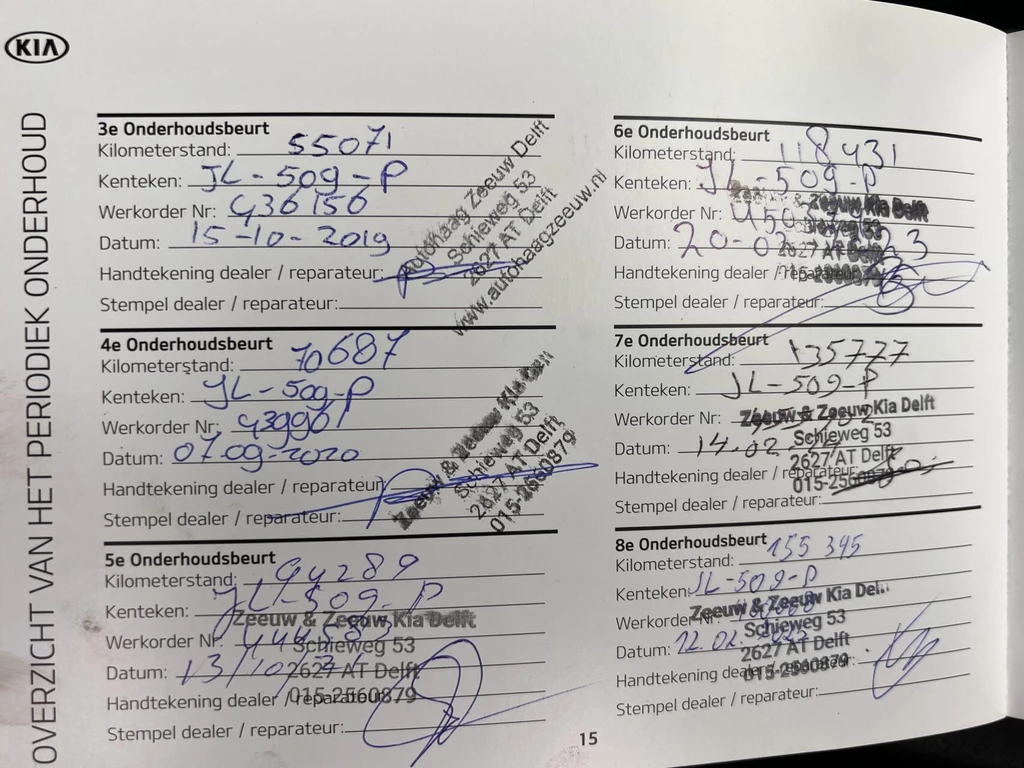 KIA
OVERZICHT VAN HET PERIODIEK ONDERHOUD
3e Onderhoudsbeurt
Kilometerstand: 55071
Kenteken: JL-509-P
Werkorder Nr: 436156
Datum: 15-10-2019
Handtekening dealer / reparateur:
Stempel dealer / reparateur:
Autohaag Zeeuw Delft
Schieweg 53
2627 AT Delft
www.autohaagzeeuw.nl
4e Onderhoudsbeurt
Kilometerstand: 70687
Kenteken: JL-509-P
Werkorder Nr: 439961
Datum: 07-09-2020
Handtekening dealer / reparateur
Stempel dealer / reparateur:
Zeeuw & Zeeuw Kia
Schieweg 53
2627 AT Delft
015-2560879
5e Onderhoudsbeurt
Kilometerstand: 94289
Kenteken: JL-509-P
Werkorder Nr.
Datum: 13/10
Handtekening dealer / reparateur:
Stempel dealer / reparateur:
Zeeuw & Zeeuw Kia Delft
Schieweg 53
2627 AT Delft
015-2560879
6e Onderhoudsbeurt
Kilometerstand: 118431
Kenteken: JL-509-P
Werkorder Nr:
Datum: 20-02
Handtekening dealer / reparateur:
Stempel dealer / reparateur:
Zeeuw & Zeeuw Kia Delft
Schieweg 53
2627 AT Delft
015-2560879
7e Onderhoudsbeurt
Kilometerstand: 135777
Kenteken: JL-509-P
Werkorder Nr:
Datum: 14.02
Handtekening dealer / reparateur:
Stempel dealer / reparateur:
Zeeuw & Zeeuw Kia Delft
Schieweg 53
2627 AT Delft
015-2560879
8e Onderhoudsbeurt
Kilometerstand: 155 395
Kenteken: JL-509-P
Werkorder Nr:
Datum: 12.02.
Handtekening dealer / reparateur:
Stempel dealer / reparateur:
Zeeuw & Zeeuw Kia
Schieweg 53
2627 AT Delft
015-2560879
15